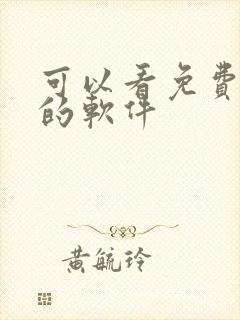 可以看免費
的軟件
黃毓玲